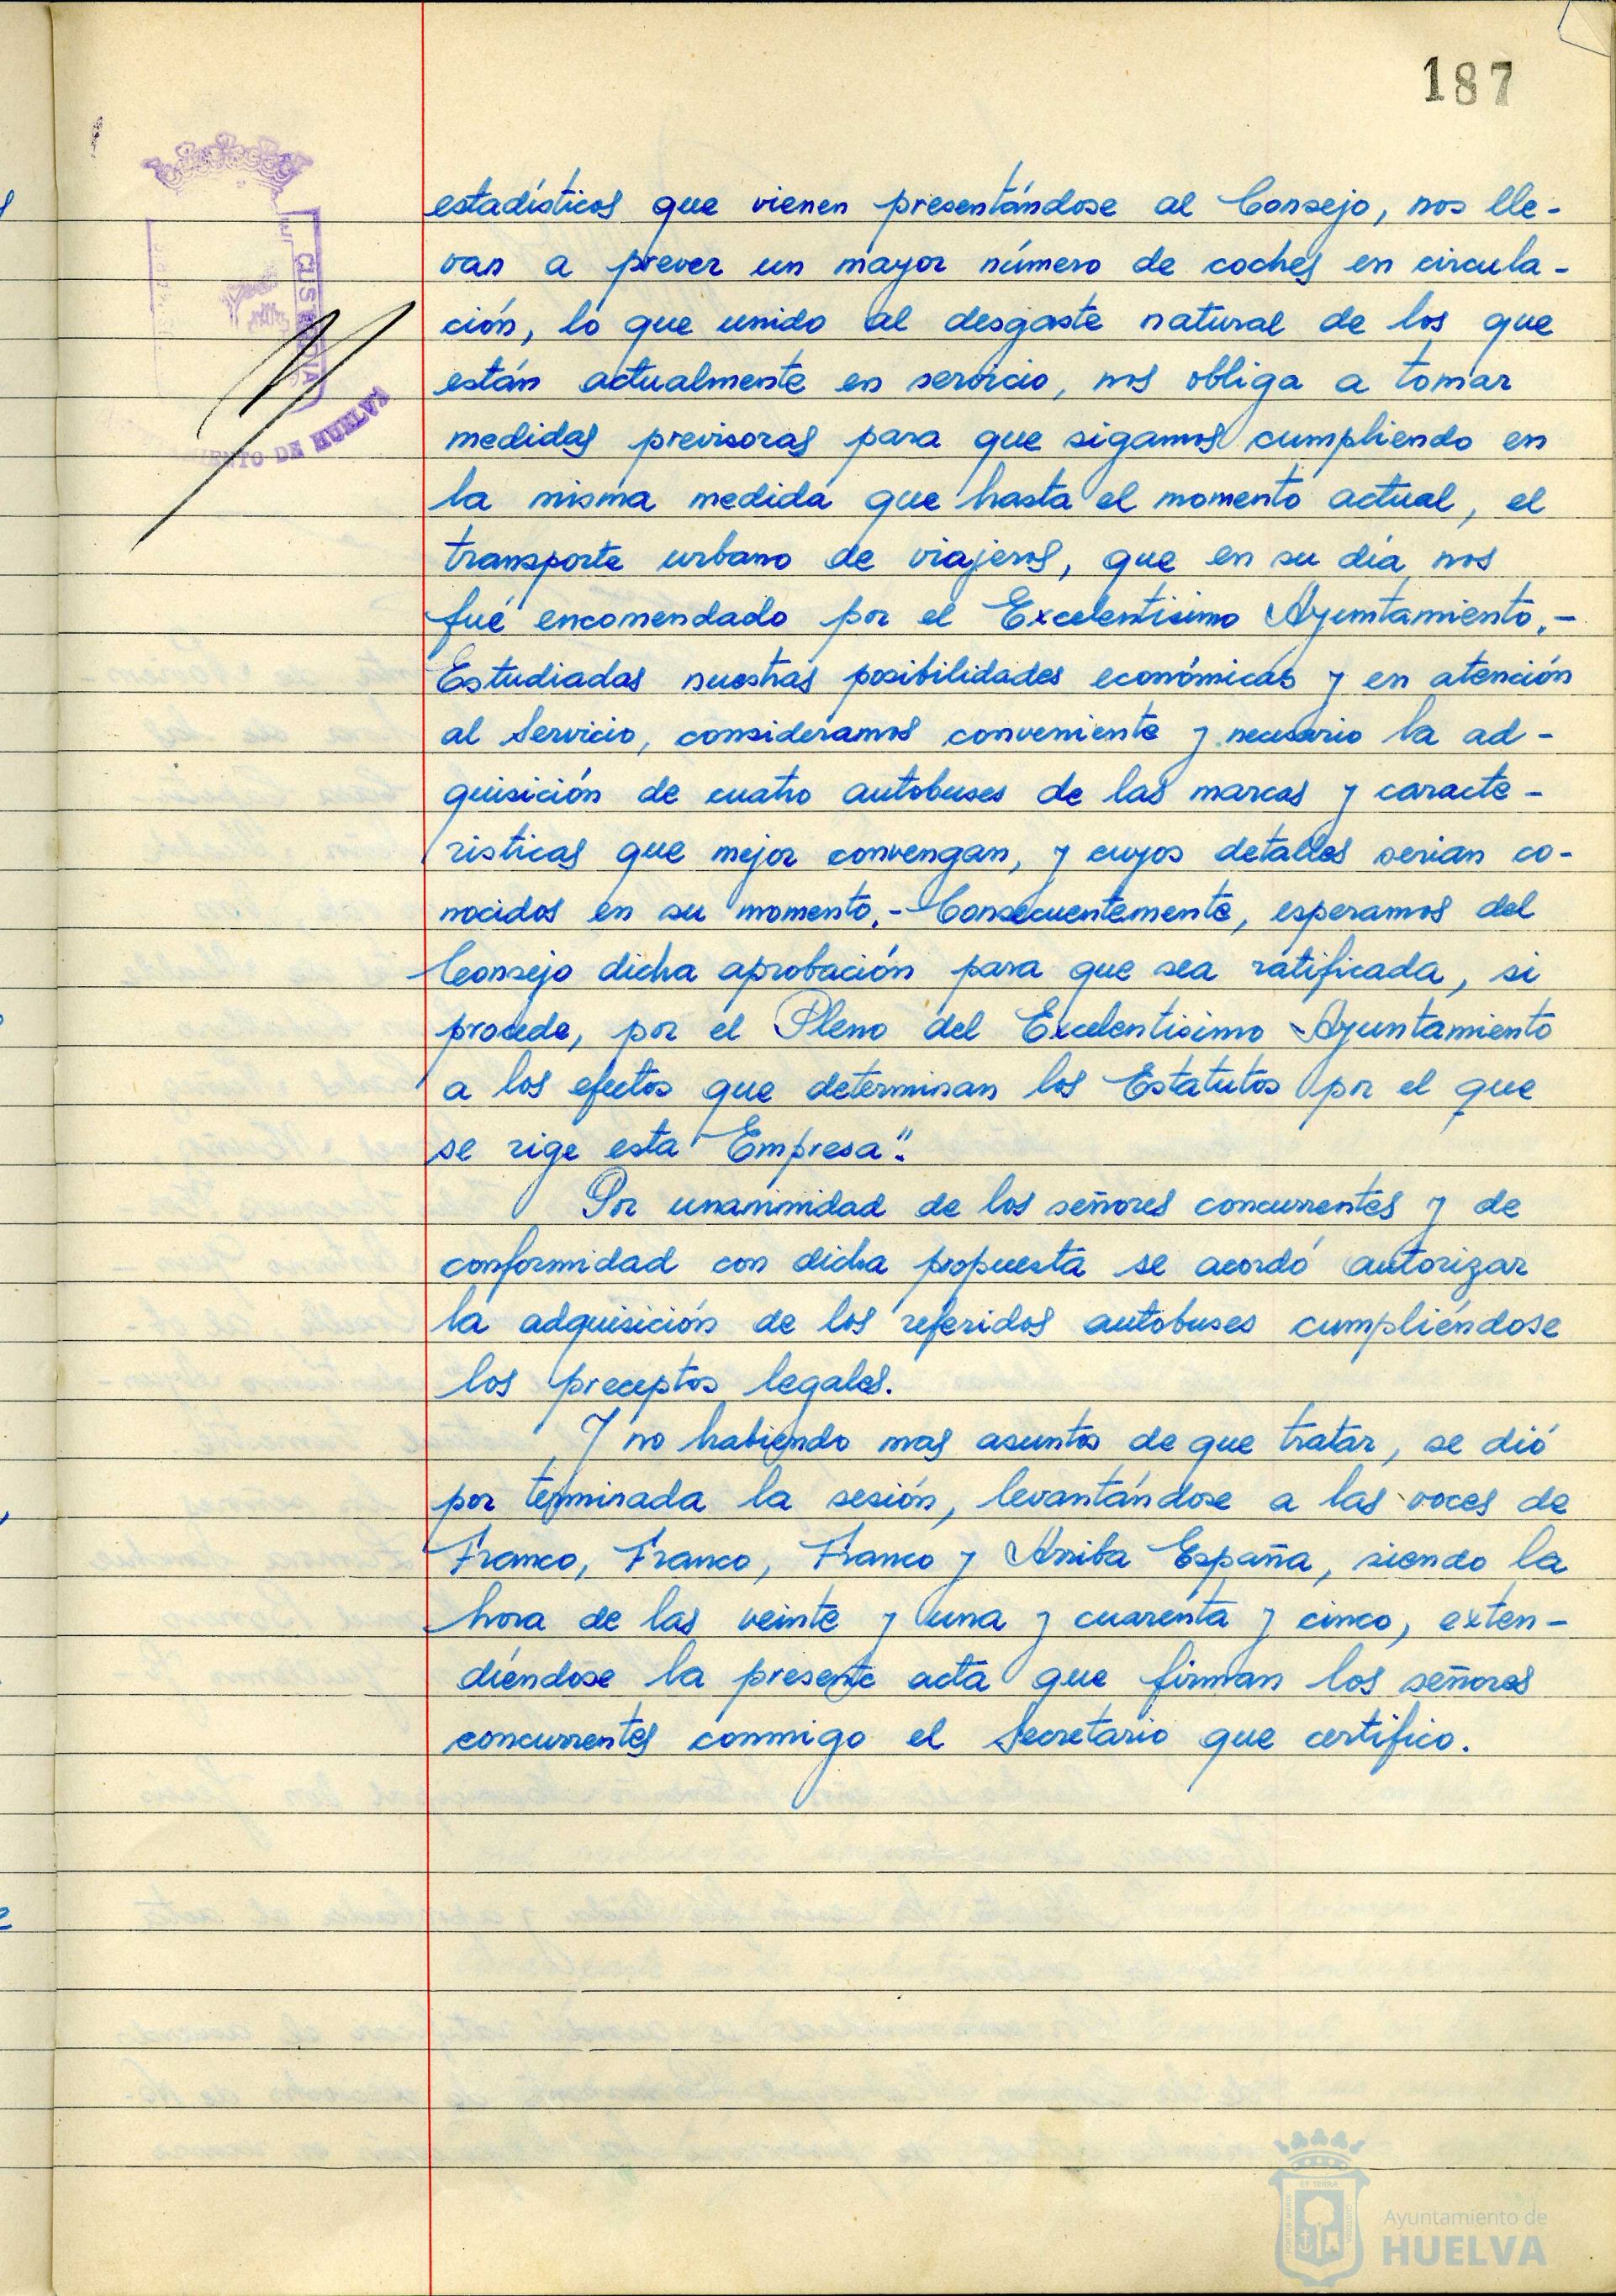 187
estadísticos que vienen presentándose al Consejo, nos lle-
van a prever un mayor número de coches en circula-
ción, lo que unido al desgaste natural de los que
están actualmente en servicio, nos obliga a tomar
medidas previsoras para que sigamos cumpliendo en
la misma medida que hasta el momento actual, el
transporte urbano de viajeros, que en su día nos
fué encomendado por el Excelentisimo Ayuntamiento.-
Estudiadas nuestras posibilidades económicas y en atención
al Servicio, consideramos conveniente y necesario la ad-
quisición de cuatro autobuses de las marcas y caracte-
risticas que mejor convengan, y cuyos detalles serian co-
nocidos en su momento.- Consecuentemente, esperamos del
Consejo dicha aprobación para que sea ratificada, si
procede, por el Pleno del Excelentisimo Ayuntamiento
a los efectos que determinan los Estatutos por el que
se rige esta Empresa".
Por unanimidad de los señores concurrentes y de
conformidad con dicha propuesta se acordó autorizar
la adquisición de los referidos autobuses cumpliéndose
los preceptos legales.
Y no habiendo mas asuntos de que tratar, se dió
por terminada la sesión, levantándose a las voces de
Franco, Franco, Franco y Arriba España, siendo la
hora de las veinte y una y cuarenta y cinco, exten-
diéndose la presente acta que firman los señores
concurrentes conmigo el Secretario que certifico.
CUSTODIA
DE HUELVA
Ayuntamiento de
HUELVA